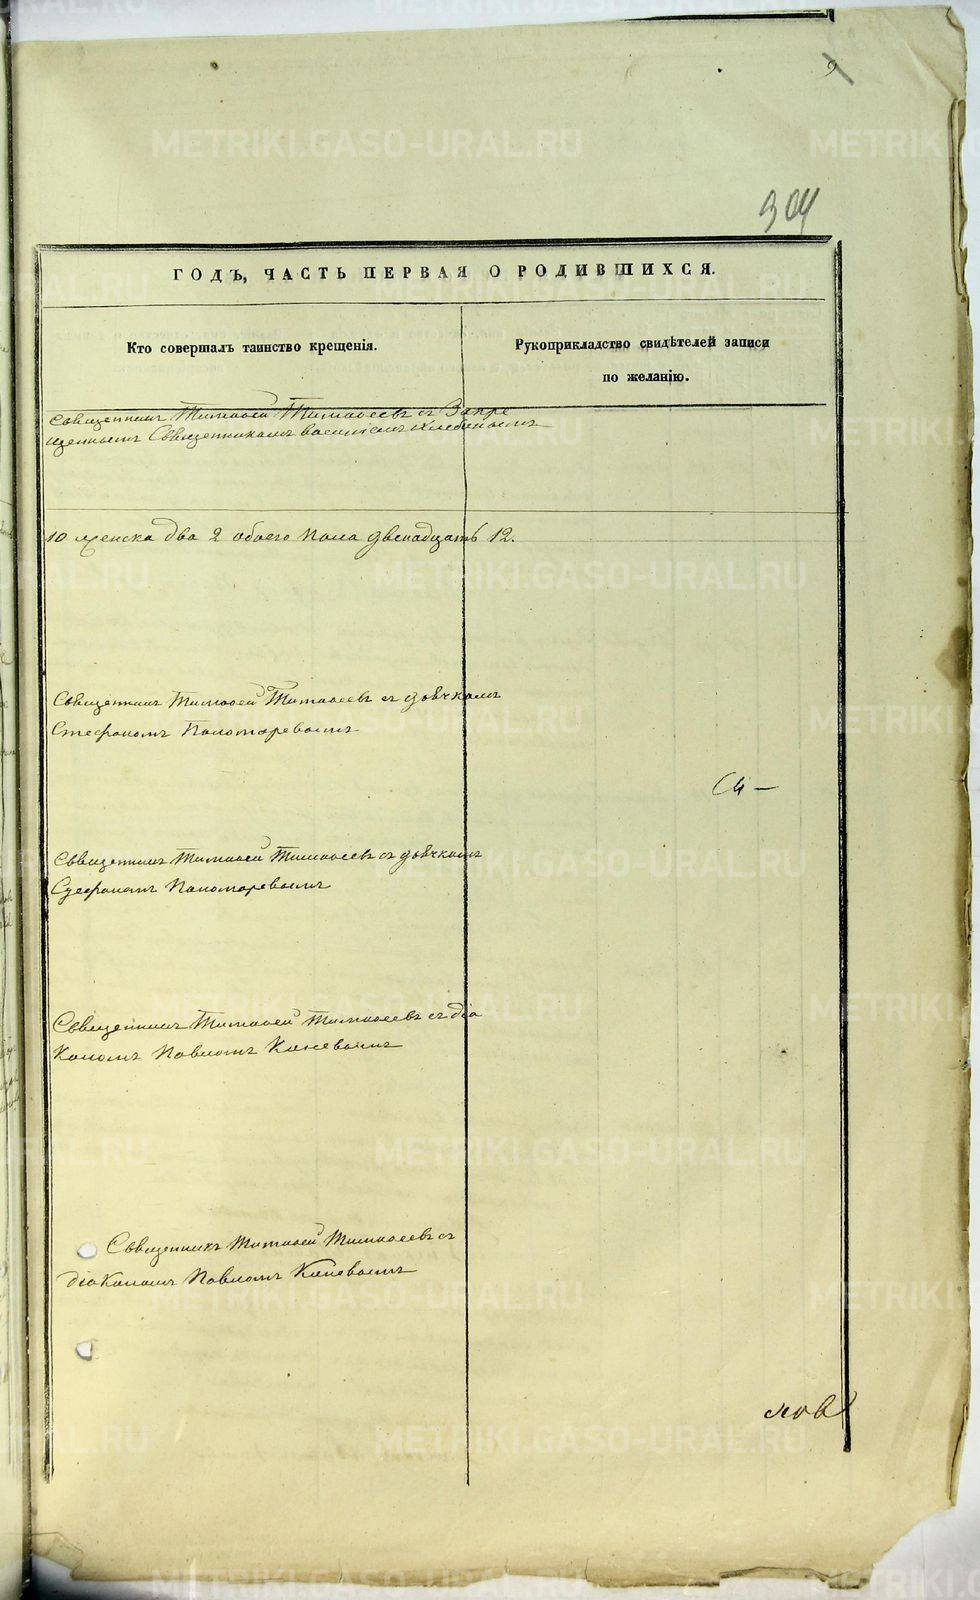 9
304
ГОДЪ, ЧАСТЬ ПЕРВАЯ О РОДИВШИХСЯ.
Кто совершалъ таинство крещенія.
Рукоприкладство свидѣтелей записи
по желанію.
Священникъ Тимофей Тимофеевъ съ Запре
щеннымъ Священникомъ Василіемъ
10 женска два 2 обоего пола двенадцать 12.
Священникъ Тимофей Тимофеевъ съ дьячкомъ
Стефаномъ Пономаревымъ
Священникъ Тимофей Тимофеевъ съ дьячкомъ
Стефаномъ Пономаревымъ
Священникъ Тимофей Тимофеевъ съ діа
кономъ Павломъ Каневымъ
Священникъ Тимофей Тимофеевъ съ
діакономъ Павломъ Каневымъ
METRIKI.GASO-URAL.RU